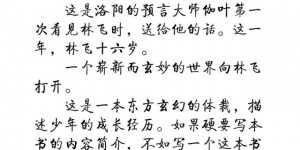 这是洛阳的预言大师伽叶第一
次看见林飞时，送给他的话。这一
年，林飞十六岁。
一个崭新而玄妙的世界向林飞
打开。
这是一本东方玄幻的体裁，描
述少年的成长经历。如果硬要写本
书的内容简介，不如写一个这本书